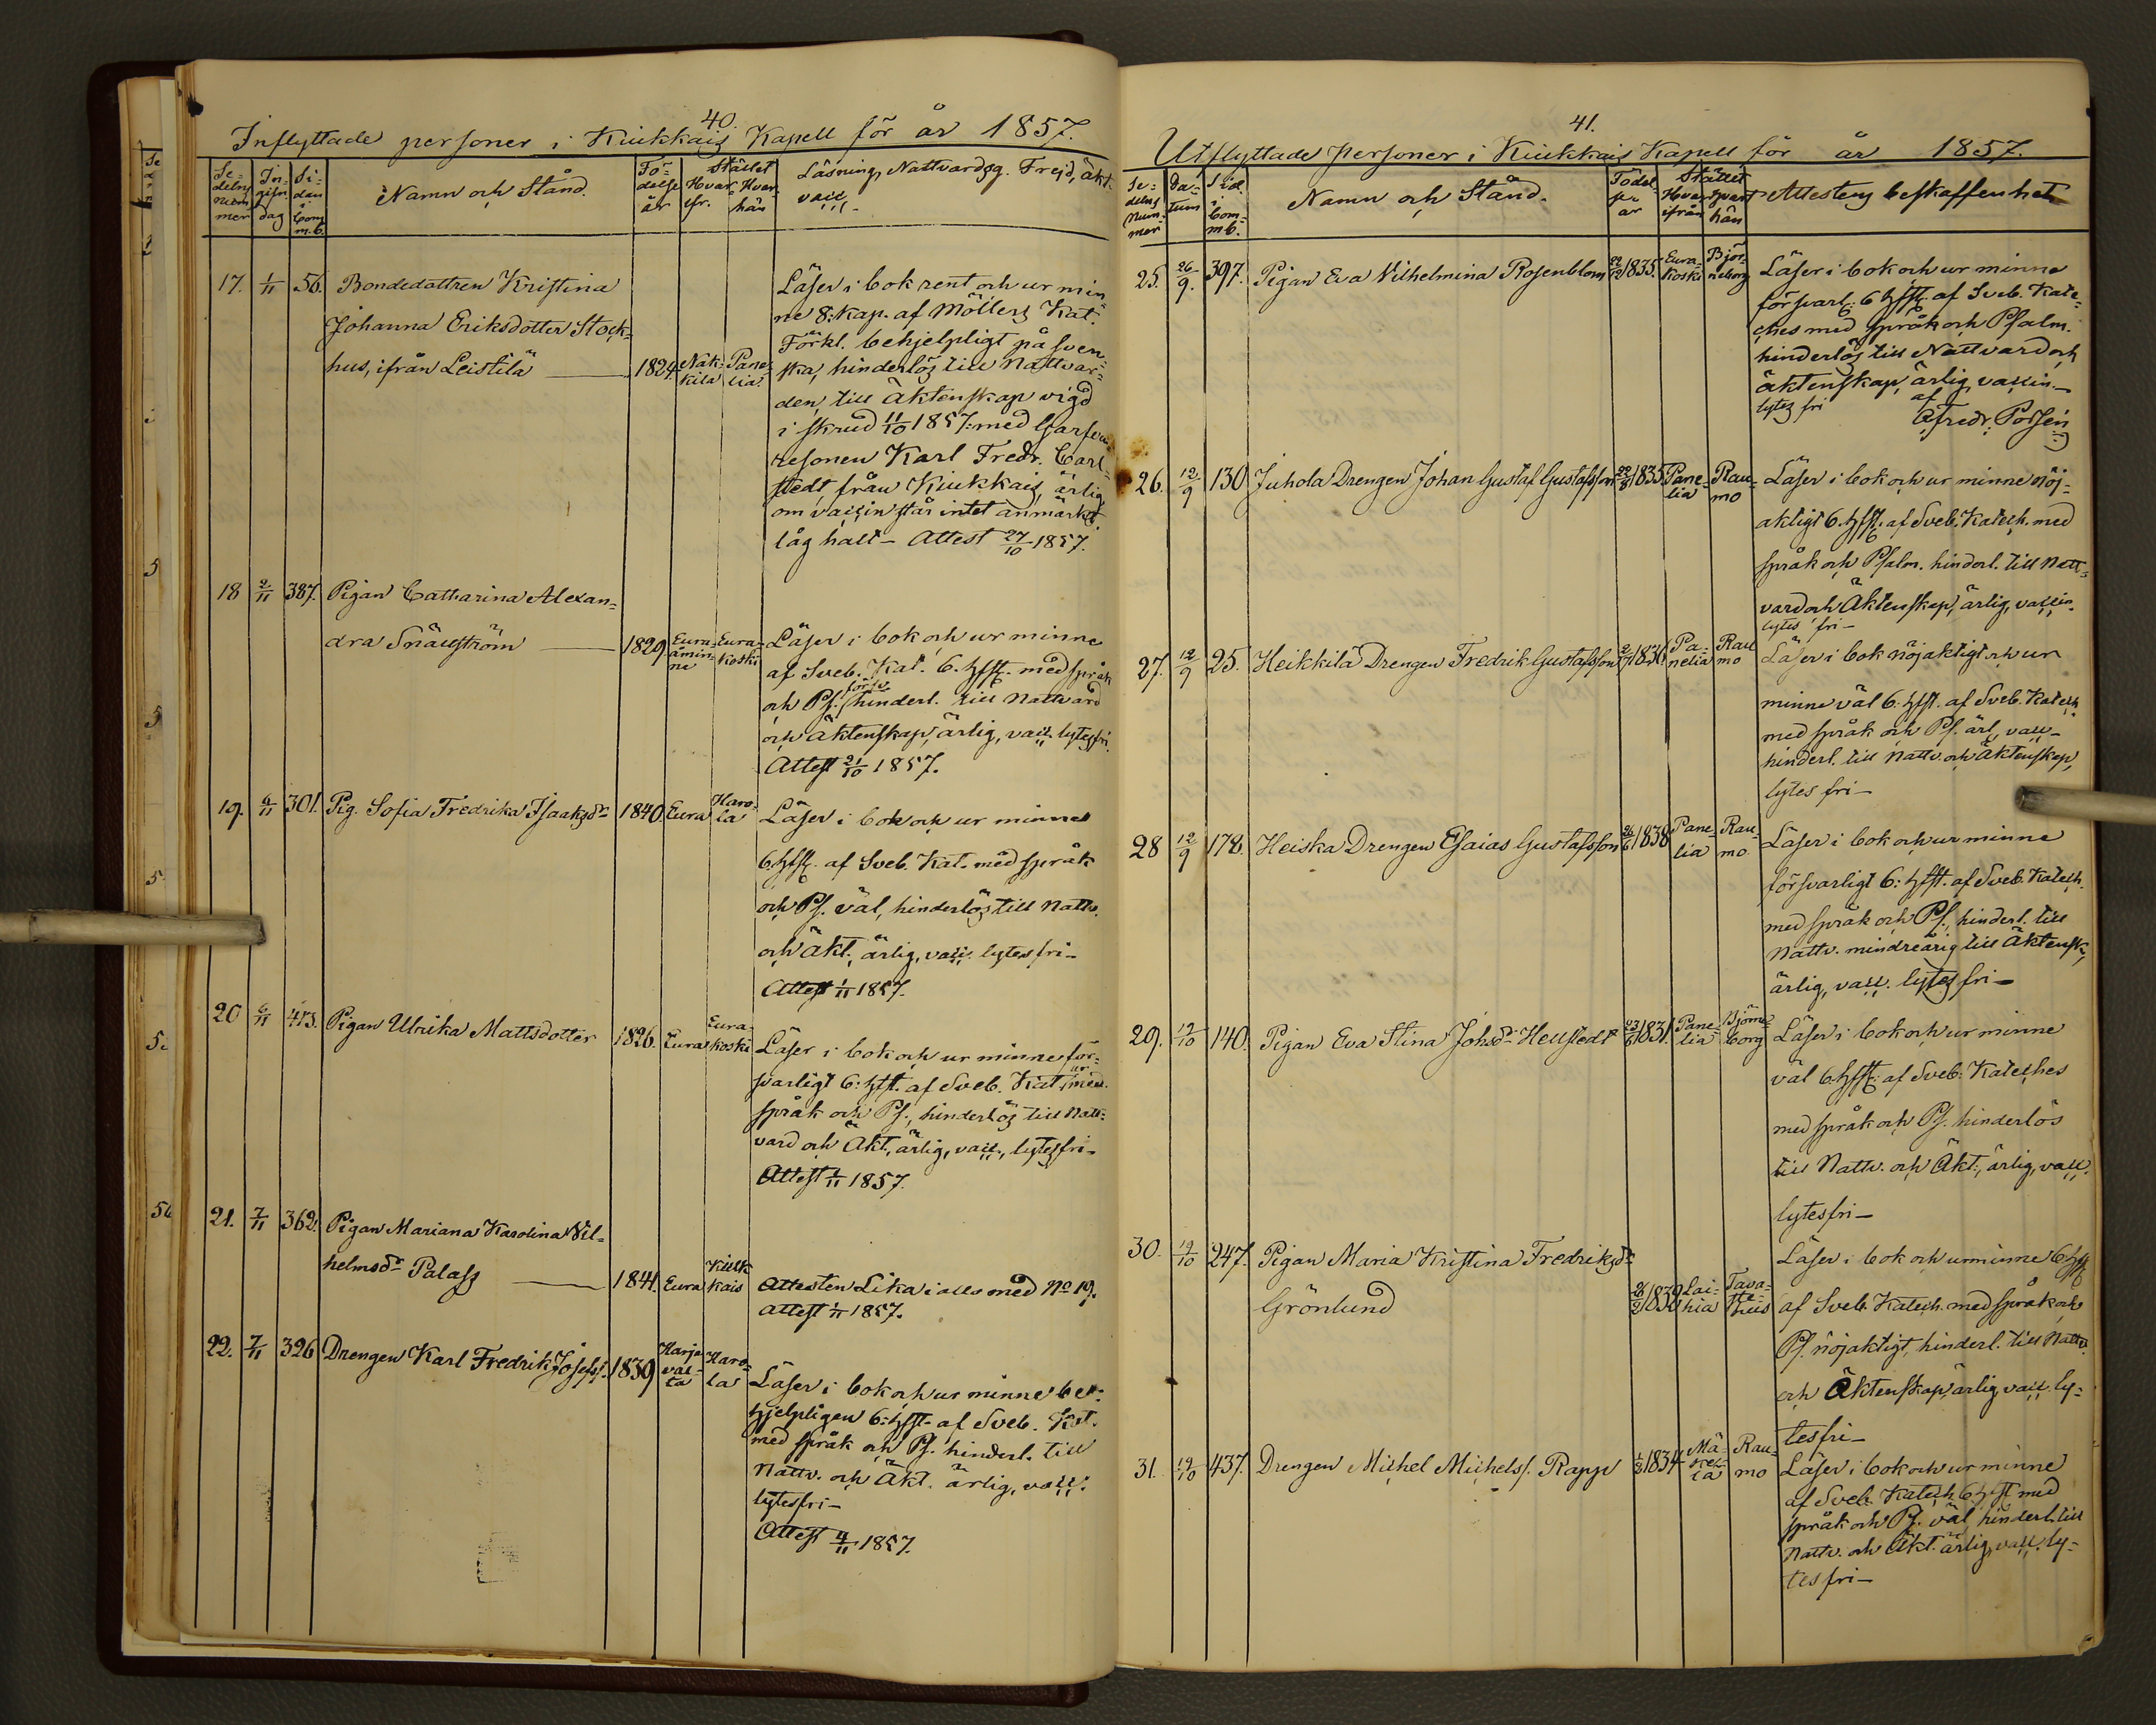 40.
Inflyttade personer i Kiukkais Kapell för år 1857.
Se=
delns
num
mer
In-
gifn.
dag
Si-
dan
i
Com
m.b.
Namn och Stånd.
Fö-
delse
år
Stället
Hvar-
ifr.
Hvar-
hän
Läsning, Nattvardsg. Frejd, äkt.
vacc.
17. 1/11 56. Bondedottren Kristina
Johanna Eriksdotter Stock-
hus, ifrån Leistilä — 1824. Nak-
kila Pane-
lia
Läser i bok rent och ur min-
ne 8: kap. af Möllers Kat.
Förkl. behjelpligt på Sven-
ska, hinderlös till Nattvar-
den, till Äktenskap vigd
i skrud 11/10 1857: med
Karl Fredr. Carl-
stedt från Kiukkais, ärlig
om vaccin står intet anmärkt.
låg halt – Attest 27/10 1857.
18 2/11 387. Pigan Catharina Alexan-
dra Snällström — 1829 Eura-
åmin-
ne Eura-
koski
Läser i bok och ur minne
af Sveb. Kat. 6. hfst. med språk
och Ps. försv. hinderl. till Nattvard
och Äktenskap, ärlig, vacc. lytesfri.
Attest 21/10 1857.
19. 6/11 301. Pig. Sofia Fredrika Isaaksdr 1840. Eura Haro-
la
Läser i bok och ur minne
6 hfst. af Sveb. Kat. med språk
och Ps. väl, hinderlös till Nattv.
och Äkt., ärlig, vacc. lytesfri –
Attest 1/11 1857.
20 6/11 413. Pigan Ulrika Mattsdotter 1826. Eura Eura-
koski
Läser i bok och ur minne för-
svarligt 6: hfst. af Sveb. Kat. med
språk och Ps., hinderlös till Natt-
vard och Äkt., ärlig, vacc., lytesfri –
Attest 1/11 1857.
21. 7/11 362. Pigan Mariana Karolina Vil-
helmsdr Palass — 1841. Eura Kiuk
kais
Attesten Lika i alles med No 19.
attest 1/11 1857.
22. 7/11 326 Drengen Karl Fredrik Josefss. 1839 Harja
val-
ta Haro-
la
Läser i bok och ur minne be-
hjelpligen 6: hfst. af Sveb. Kat.
med språk och Ps. hinderl. till
Nattv. och Äkt. ärlig, vacc.
lytesfri –
Attest 4/11 1857.
41.
Utflyttade Personer i Kiukkais Kapell för år 1857.
Se=
delns
Num-
mer
Da-
tum
Sid.
i
Com-
m.b.
Namn och Stånd.
Födel-
se
år
Stället
Hvar
ifrån
Hvart
hän
Attestens beskaffenhet
25. 26/9. 397. Pigan Eva Vilhelmina Rosenblom 22/12 1835. Eura-
koski Björ-
neborg
Läser i bok och ur minne
försvarl. 6 hfst. af Sveb. Kate-
ches med språk och Psalm.
hinderlös till Nattvard och
äktenskap, ärlig, vaccin.
lytes fri af
Afredr. Possén
26. 12/9 130 Juhola Drengen Johan Gustaf Gustafsson 22/8 1835 Pane-
lia Rau-
mo
Läser i bok och ur minne nöj-
aktigt 6. hfst. af Sveb. Katech. med
språk och Psalm. hinderl. till Natt-
vard och Äktenskap, ärlig, vaccin.
lytes fri –
27. 12/9 25. Heikkilä Drengen Fredrik Gustafsson 2/7 1836 Pa-
nelia Rau
mo
Läser i bok nöjaktigt och ur
minne väl 6: hfst. af Sveb. Katech.
med språk och Ps. ärl., vacc.
hinderl. till Nattv. och Äktenskap,
lytes fri –
28 12/9 178. Heiska Drengen Esaias Gustafsson 26/6 1838 Pane-
lia Rau-
mo
Läser i bok och ur minne
försvarligt 6: hfst. af Sveb. Katech.
med språk och Ps., hinderl. till
Nattv. mindreårig till Äktensk.,
ärlig, vacc. lytes fri –
29. 19/10 140. Pigan Eva Stina Johsdr Hellstedt 23/6 1831. Pane-
lia Björne-
borg
Läser i bok och ur minne
väl 6. hfst. af Sveb. Kateches
med språk och Ps. hinderlös
till Nattv. och Äkt., ärlig, vacc.
lytesfri –
30. 19/10 247. Pigan Maria Kristina Fredriksdr
Grönlund 26/2 1839 Lai-
hia Tava-
ste-
hus
Läser i bok och ur minne 6 hfst
af Sveb. Katech. med språk och
Ps. nöjaktigt, hinderl. till Nattv.
och Äktenskap, ärlig vacc. ly-
tesfri –
31. 19/10 437. Drengen Michel Michelss. Rapp 1834 Mä-
kel-
lä Rau-
mo
Läser i bok och ur minne
af Sveb. Katech. 6. hfst med
språk och Ps. väl hinderl. till
Nattv. och Äkt. ärlig, vacc. ly-
tes fri –